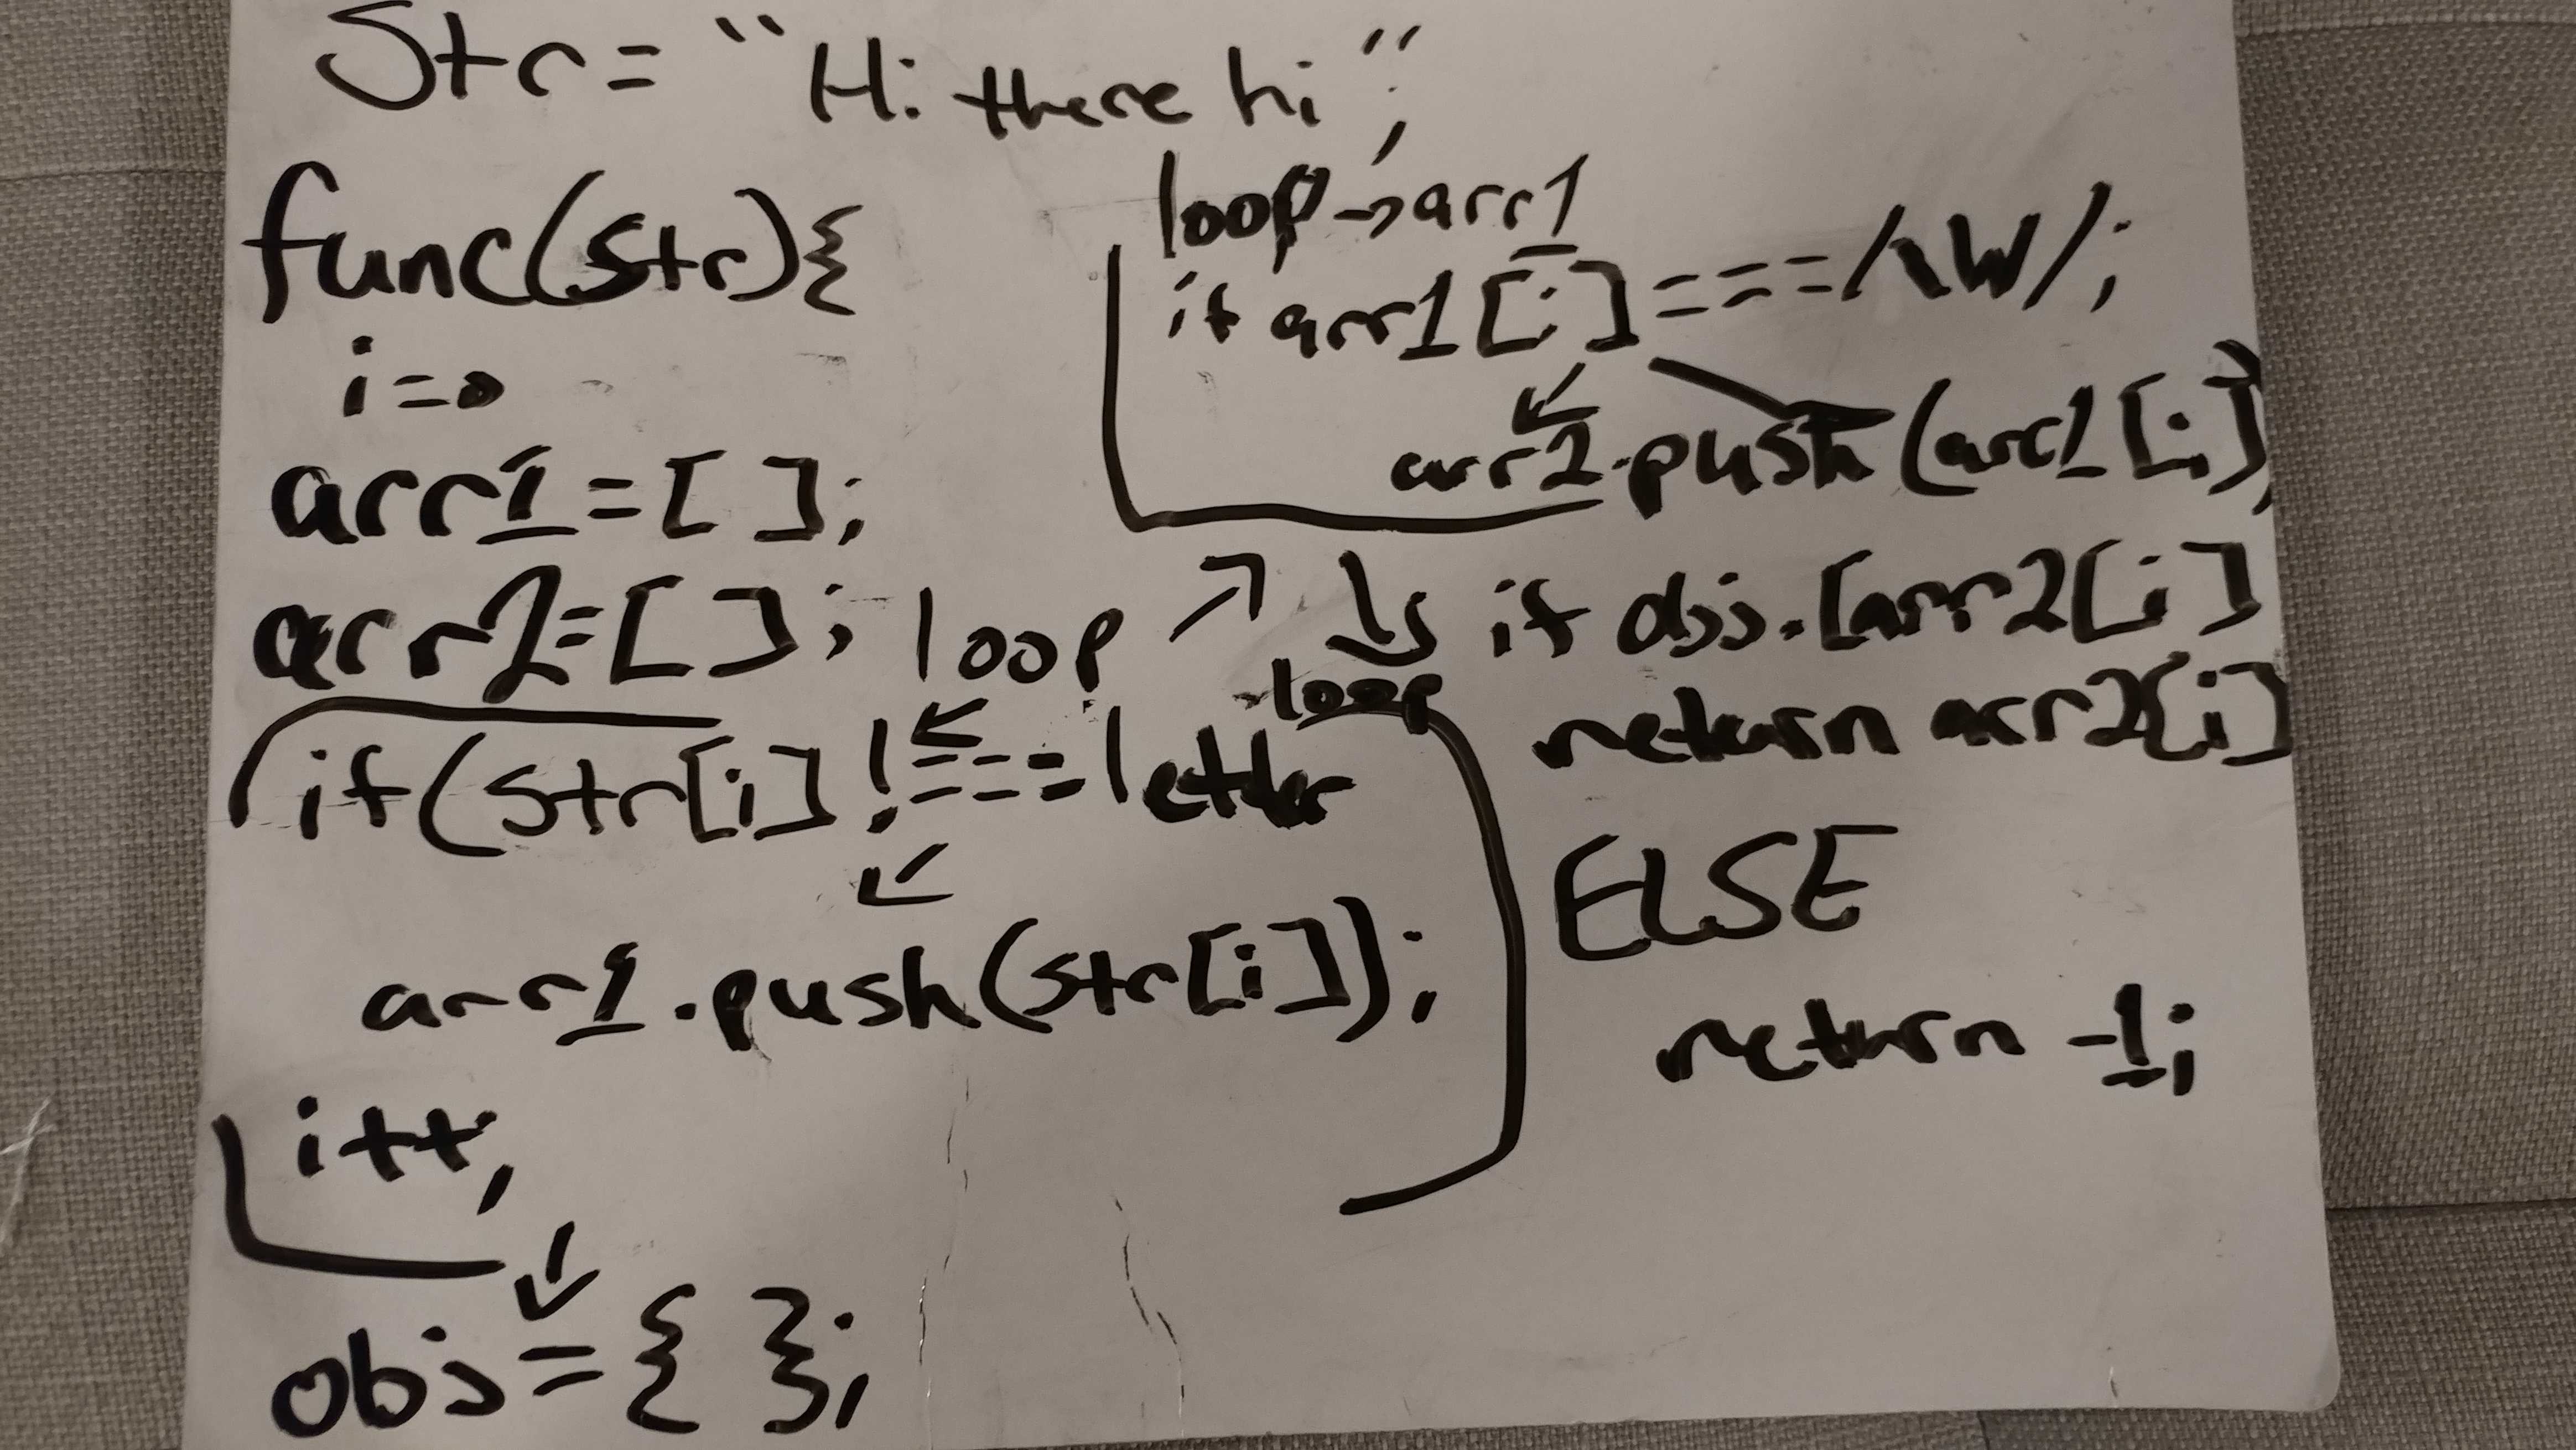 Str = "Hi there hi";
func(str){
i=0
arr1=[];
arr2=[]; loop
if(str[i] !=== letter
arr1.push(str[i]);
i++;
obj={ };
loop→arr1
if arr1[i]===/\W/;
arr2.push(arr1[i]);
loop
if obj.[arr2[i]
return arr2[i]
ELSE
return -1;